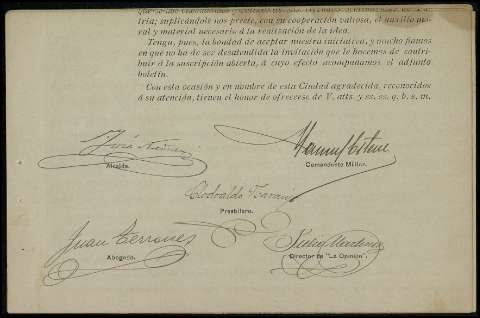 tria; suplicándole nos preste, con su cooperación valiosa, el auxilio mo-
ral y material necesario á la realización de la idea.
Tenga, pues, la bondad de aceptar nuestra iniciativa, y mucho fiamos
en que no ha de ser desatendida la invitación que le hacemos de contri-
buir á la suscripción abierta, á cuyo efecto acompañamos el adjunto
boletín.
Con esta ocasión y en nombre de esta Ciudad agradecida, reconocidos
á su atención, tienen el honor de ofrecerse de V. atts. y ss. ss. q. b. s. m.
José
Alcalde.
Comandante Militar.
Clodoaldo
Presbítero.
Juan Terrones
Abogado.
Julio
Director de "La Opinión".